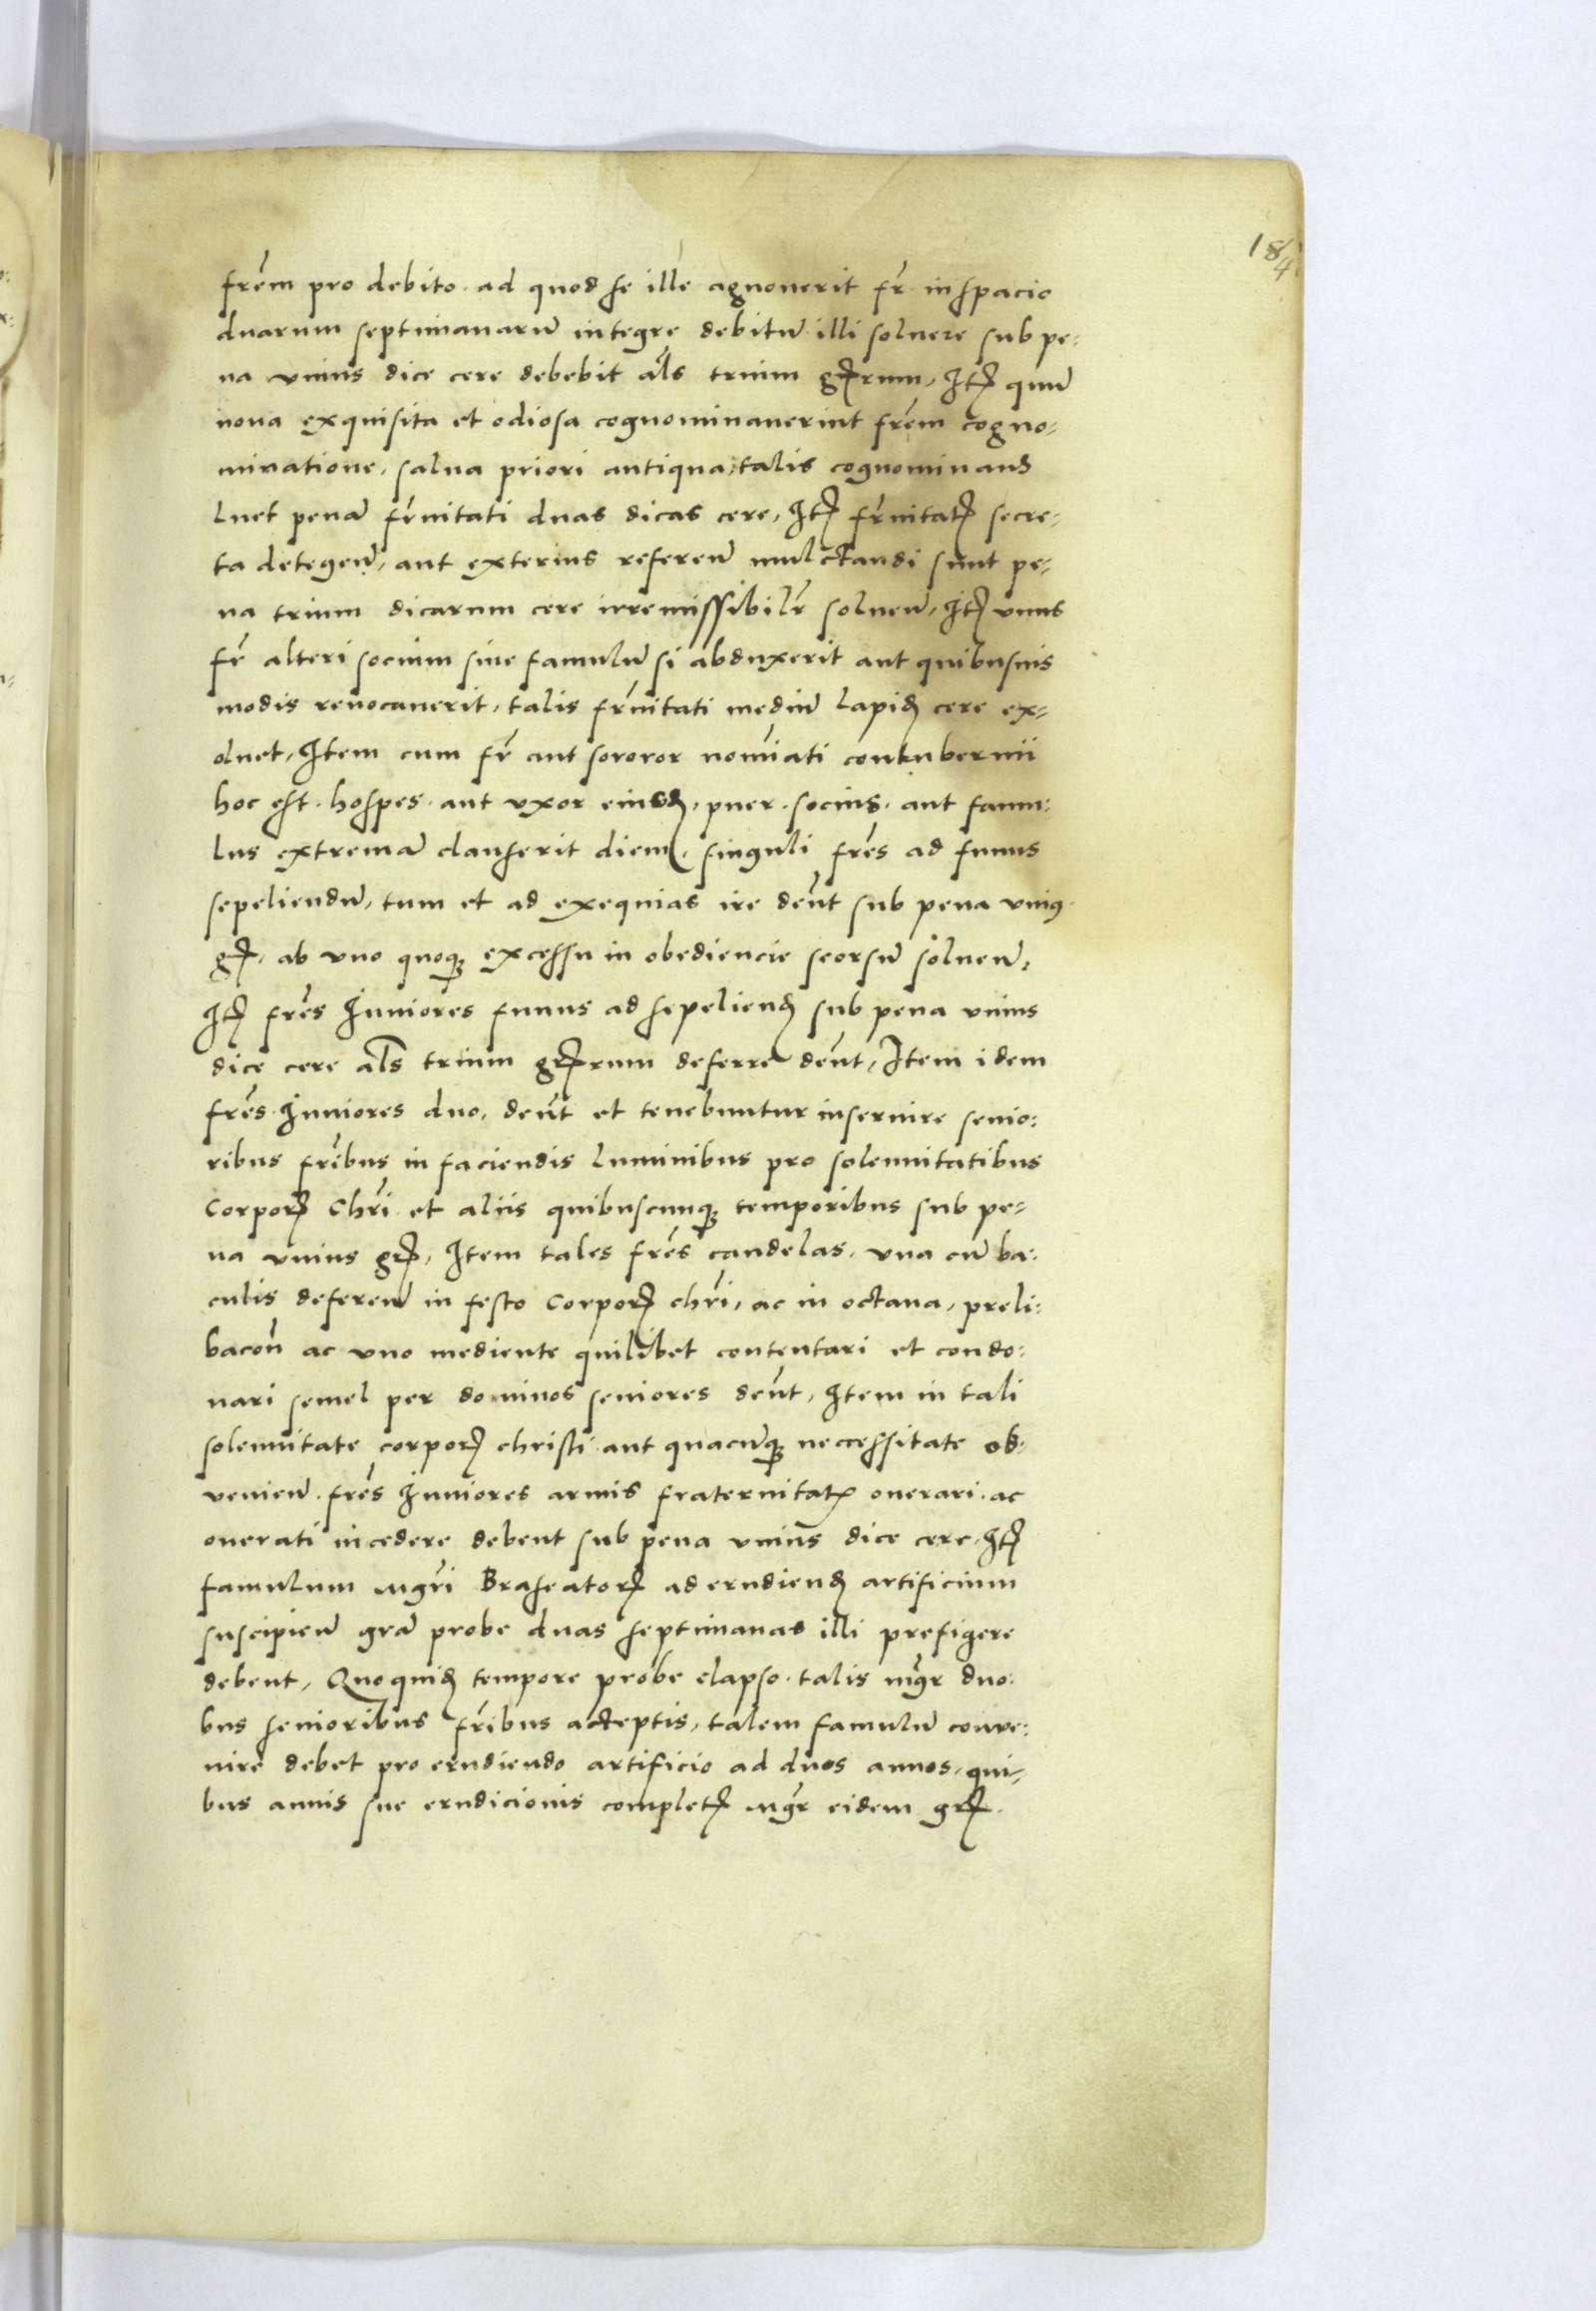 184
frēm pro debito. ad quod se ille agnouerit fr̄ in spacio
duarum septimanarū integre debitū illi soluere sub pe-
na vnius dice cere debebit al̄s trium grꝭrum, Itꝭ quū
noua exquisita et odiosa cognominauerint frēm cogno-
minatione, salua priori antiqua, talis cognominans
luet penā fr̄nitati duas dicas cere, Itꝭ fr̄nitatꝭ secre-
ta detegeñ, aut exterius refereñ mulctandi sunt pe-
na trium dicarum cere irremissibilr̄ solueñ, Itꝭ vnus
fr̄ alteri socium siue famulū si abduxerit aut quibusuis
modis reuocauerit, talis fr̄nitati mediū lapidꝭ cere ex-
oluet, Item cum fr̄ aut sororor nomīati contubernii
hoc est. hospes. aut vxor eiusdꝭ, puer. socius. aut famu-
lus extremā clauserit diem, singuli frēs ad funus
sepeliendū, tum et ad exequias ire den̄t sub pena vniꝰ
grꝭ, ab vno quoqꝫ excessu in obediencie seorsū solueñ,
Itꝭ frēs Iuniores funus ad sepeliendꝭ sub pena vnius
dice cere al̄s trium grꝭrum deferre den̄t, Item idem
frēs Iuniores duo, den̄t et tenebuntur inseruire senio-
ribus frībus in faciendis luminibus pro solennitatibus
Corporꝭ Chr̄i et aliis quibuscunqꝫ temporibus sub pe-
na vnius grꝭ, Item tales frēs candelas. vna cū ba-
culis defereñ in festo Corporꝭ chr̄i, ac in octaua, preli-
bacoñ ac vno mediente quilibet contentari et condo-
nari semel per dominos seniores den̄t, Item in tali
solennitate corporꝭ christi aut quacūqꝫ neccessitate ob-
venieñ. frēs Iuniores armis fraternitatꝭ onerari. ac
onerati incedere debent sub pena vnius dice cere, Itꝭ
famulum mgr̄i Braseatorꝭ ad erudiendꝭ artificium
suscipieñ grā probe duas septimanas illi prefigere
debent, Quoquidꝭ tempore probe elapso. talis mgr̄ duo-
bus senioribus fr̄ibus acceptis, talem famulū conue-
nire debet pro erudiendo artificio ad duos annos, qui-
bus annis sue erudicionis completꝭ mgr̄ eidem grꝭ.